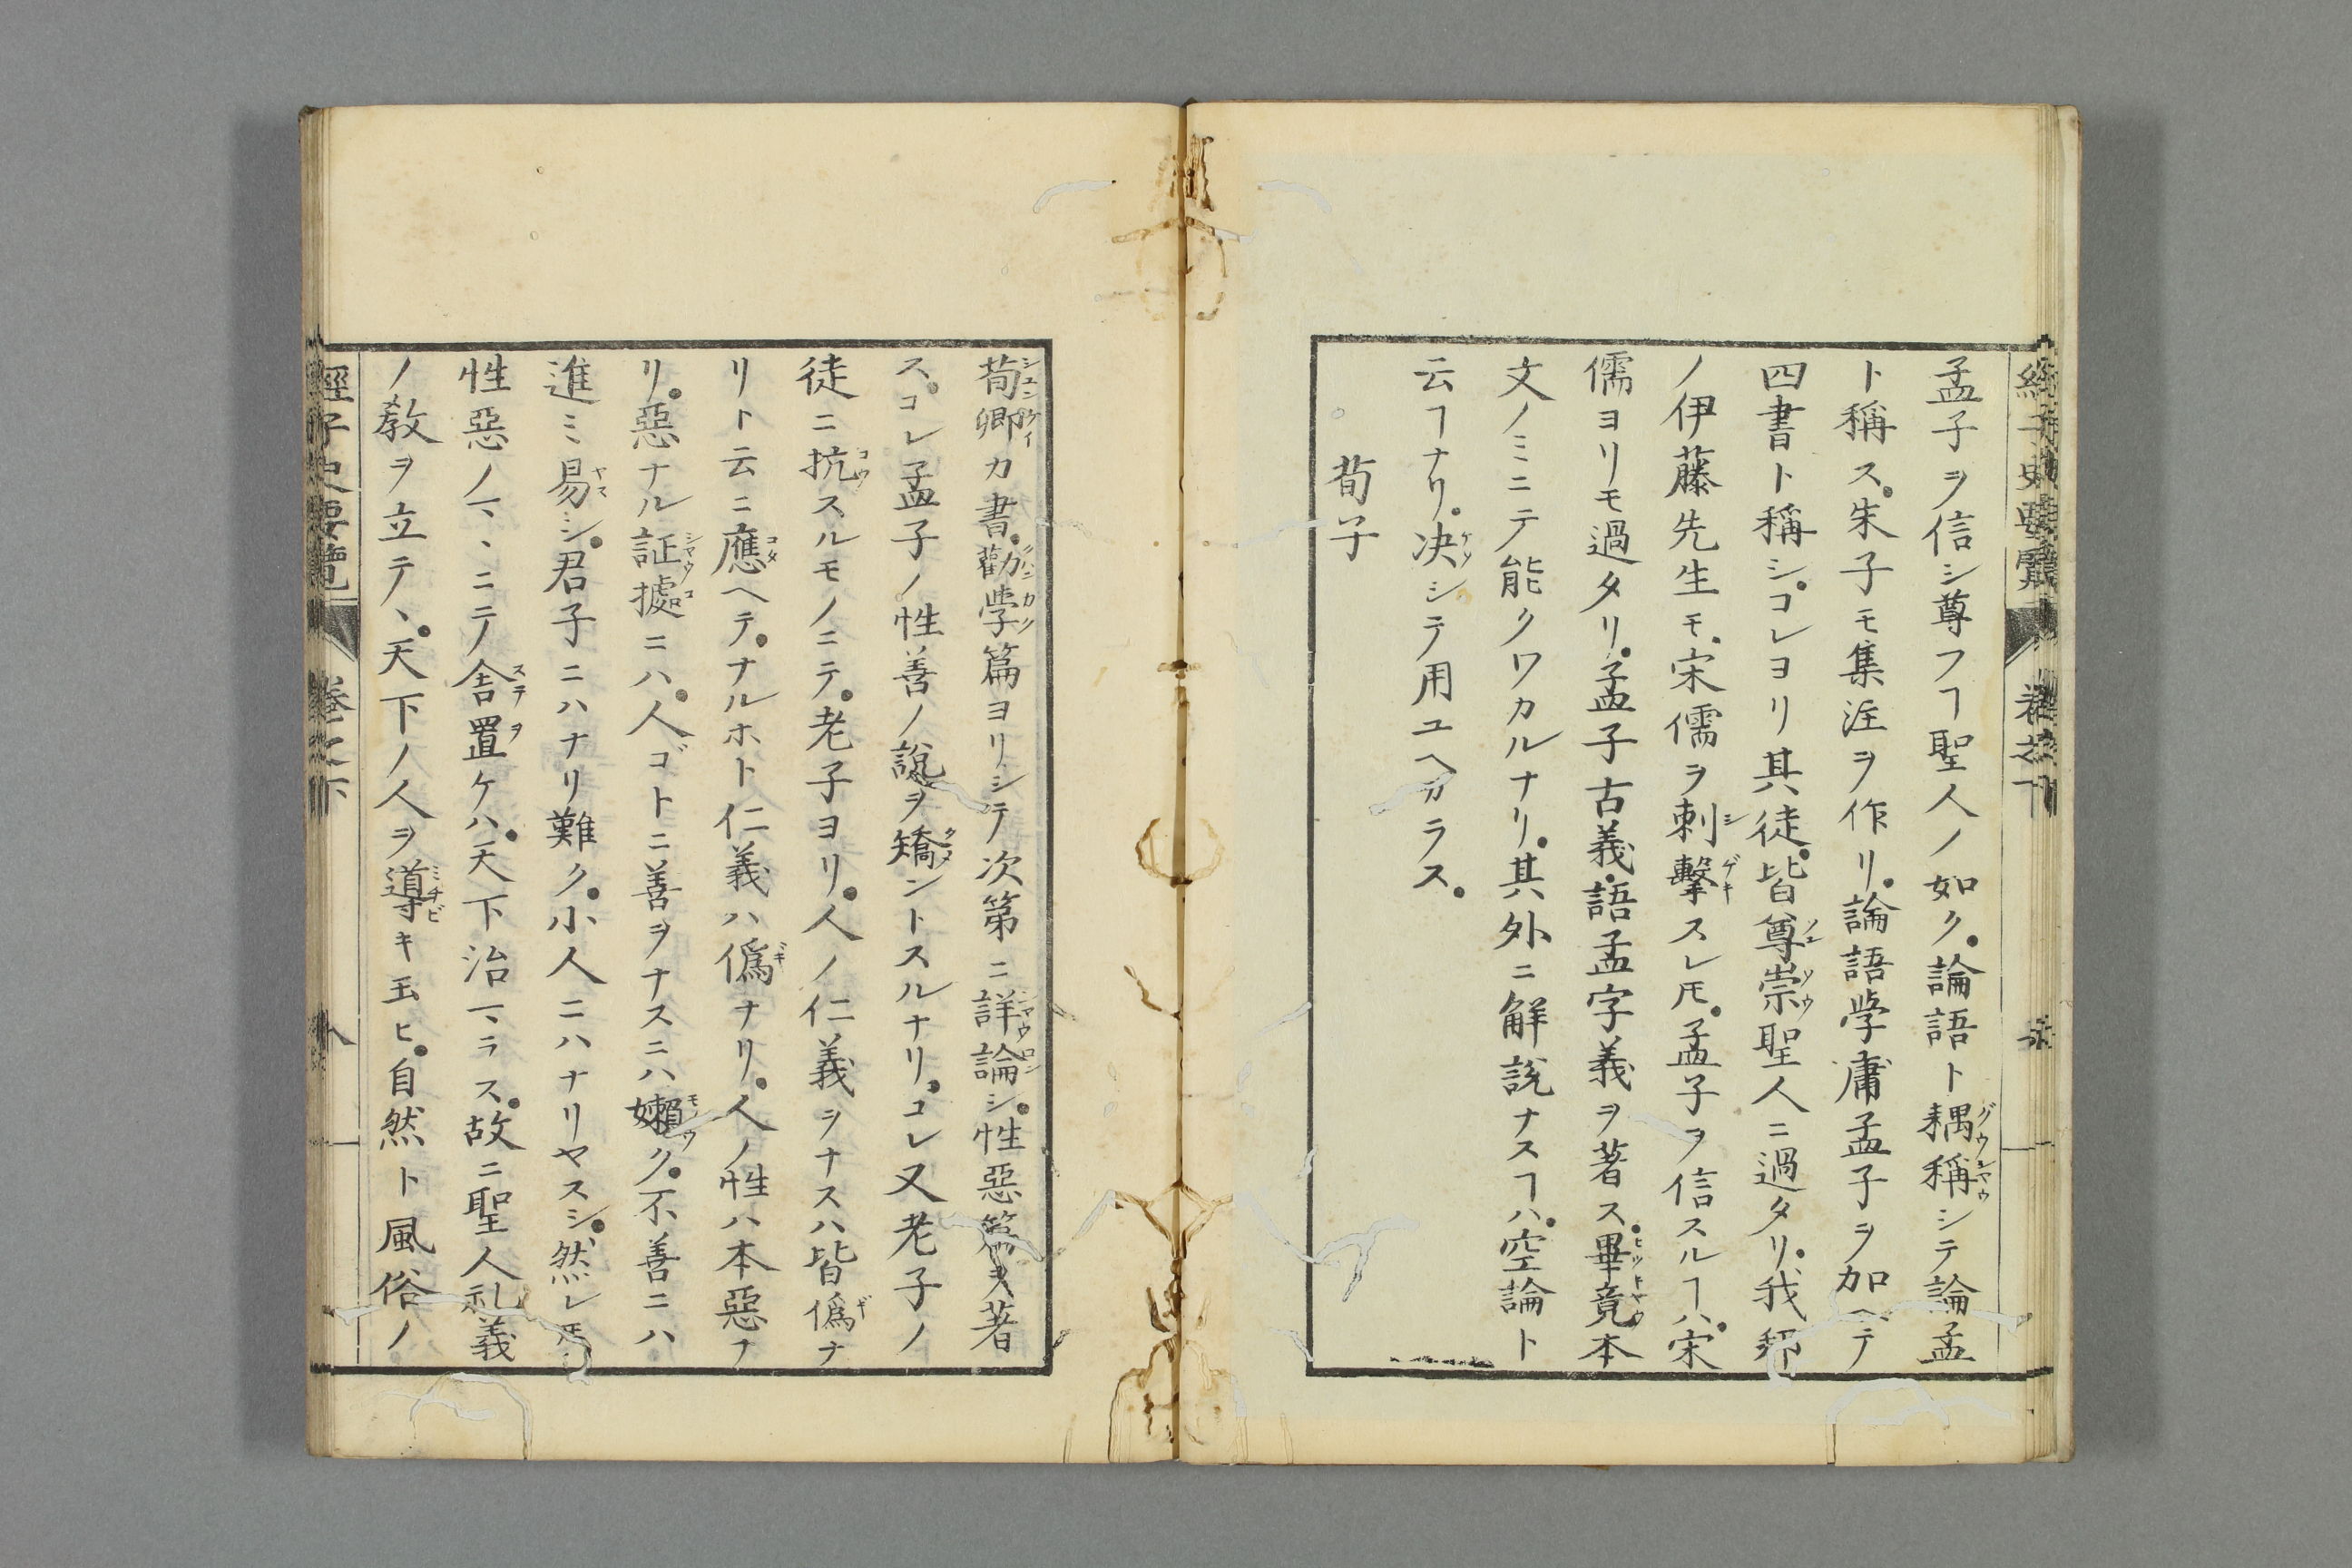 孟子ヲ信シ尊フヿ聖人ノ如ク。論語ト耦稱シテ論孟
ト稱ス。朱子モ集注ヲ作リ。論語学庸孟子ヲ加ヘテ
四書ト稱シ。コレヨリ其徒。皆尊崇聖人ニ過タリ。我邦
ノ伊藤先生モ、宋儒ヲ刺擊スレ𪜈。孟子ヲ信スルヿハ。宋
儒ヨリモ過タリ。孟子古義。語孟字義ヲ著ス。畢竟本
文ノミニテ能クワカルナリ。其外ニ解說ナスヿハ。空論ト
云フヿナリ。决シテ用ユヘカラス。
○荀子
荀卿カ書。勸学篇ヨリシテ次第ニ詳論シ。性惡篇ヲ著
ス。コレ孟子ノ性善ノ說ヲ矯ントスルナリ。コレ又老子ノ
徒ニ抗スルモノニテ。老子ヨリ。人ノ仁義ヲナスハ皆僞ナ
リト云ニ應ヘテ。ナルホト仁義ハ僞ナリ。人ノ性ハ本惡ナ
リ。惡ナル証據ニハ。人ゴトニ善ヲナスニハ嬾ク。不善ニハ
進ミ易シ。君子ニハナリ難ク。小人ニハナリヤスシ。然レ𪜈。
性惡ノマヽニテ舍置ケハ。天下治マラス。故ニ聖人礼義
ノ敎ヲ立テヽ。天下ノ人ヲ導キ玉ヒ。自然ト風俗ノ
經子史要覽 卷之下 八